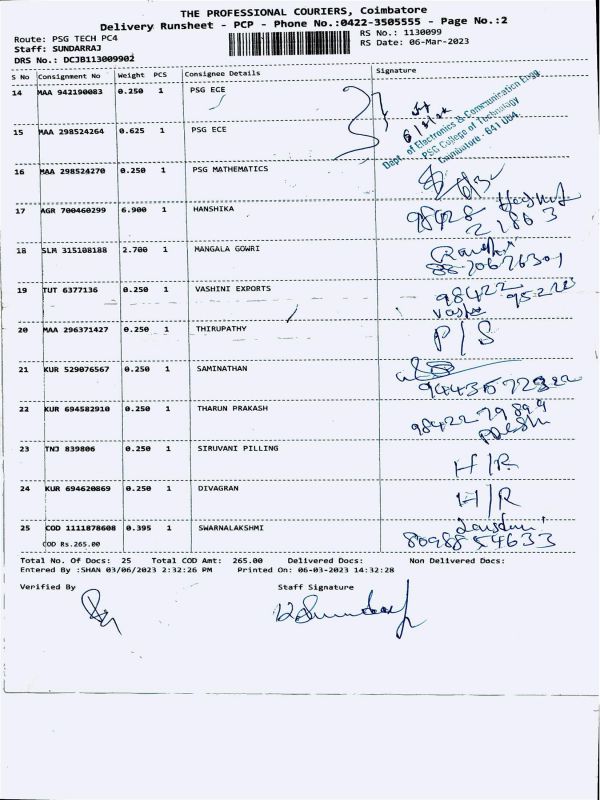 THE PROFESSIONAL COURIERS, Coimbatore
Delivery Runsheet - PCP - Phone No.:0422-3505555 - Page No.:2
Route: PSG TECH PC4
RS No.: 1130099
Staff: SUNDARRAJ
RS Date: 06-Mar-2023
DRS No.: DCJB113009902
S No Consignment No Weight PCS Consignee Details Signature
14 MAA 942190083 0.250 1 PSG ECE
Dept. of Electronics & Communication Engg.
PSG College of Technology
Coimbatore - 641 004.
15 MAA 298524264 0.625 1 PSG ECE
16 MAA 298524270 0.250 1 PSG MATHEMATICS
17 AGR 700460299 6.900 1 HANSHIKA
98428
22863
18 SLM 315108188 2.700 1 MANGALA GOWRI
19 TUT 6377136 0.250 1 VASHINI EXPORTS
98422
20 MAA 296371427 0.250 1 THIRUPATHY
P/S
21 KUR 529076567 0.250 1 SAMINATHAN
22 KUR 694582910 0.250 1 THARUN PRAKASH
98422 79899
23 TNJ 839806 0.250 1 SIRUVANI PILLING
H/R
24 KUR 694620869 0.250 1 DIVAGRAN
H/R
25 COD 1111878608 0.395 1 SWARNALAKSHMI
COD Rs.265.00
80988 54633
Total No. Of Docs: 25 Total COD Amt: 265.00 Delivered Docs: Non Delivered Docs:
Entered By :SHAN 03/06/2023 2:32:26 PM Printed On: 06-03-2023 14:32:28
Verified By Staff Signature